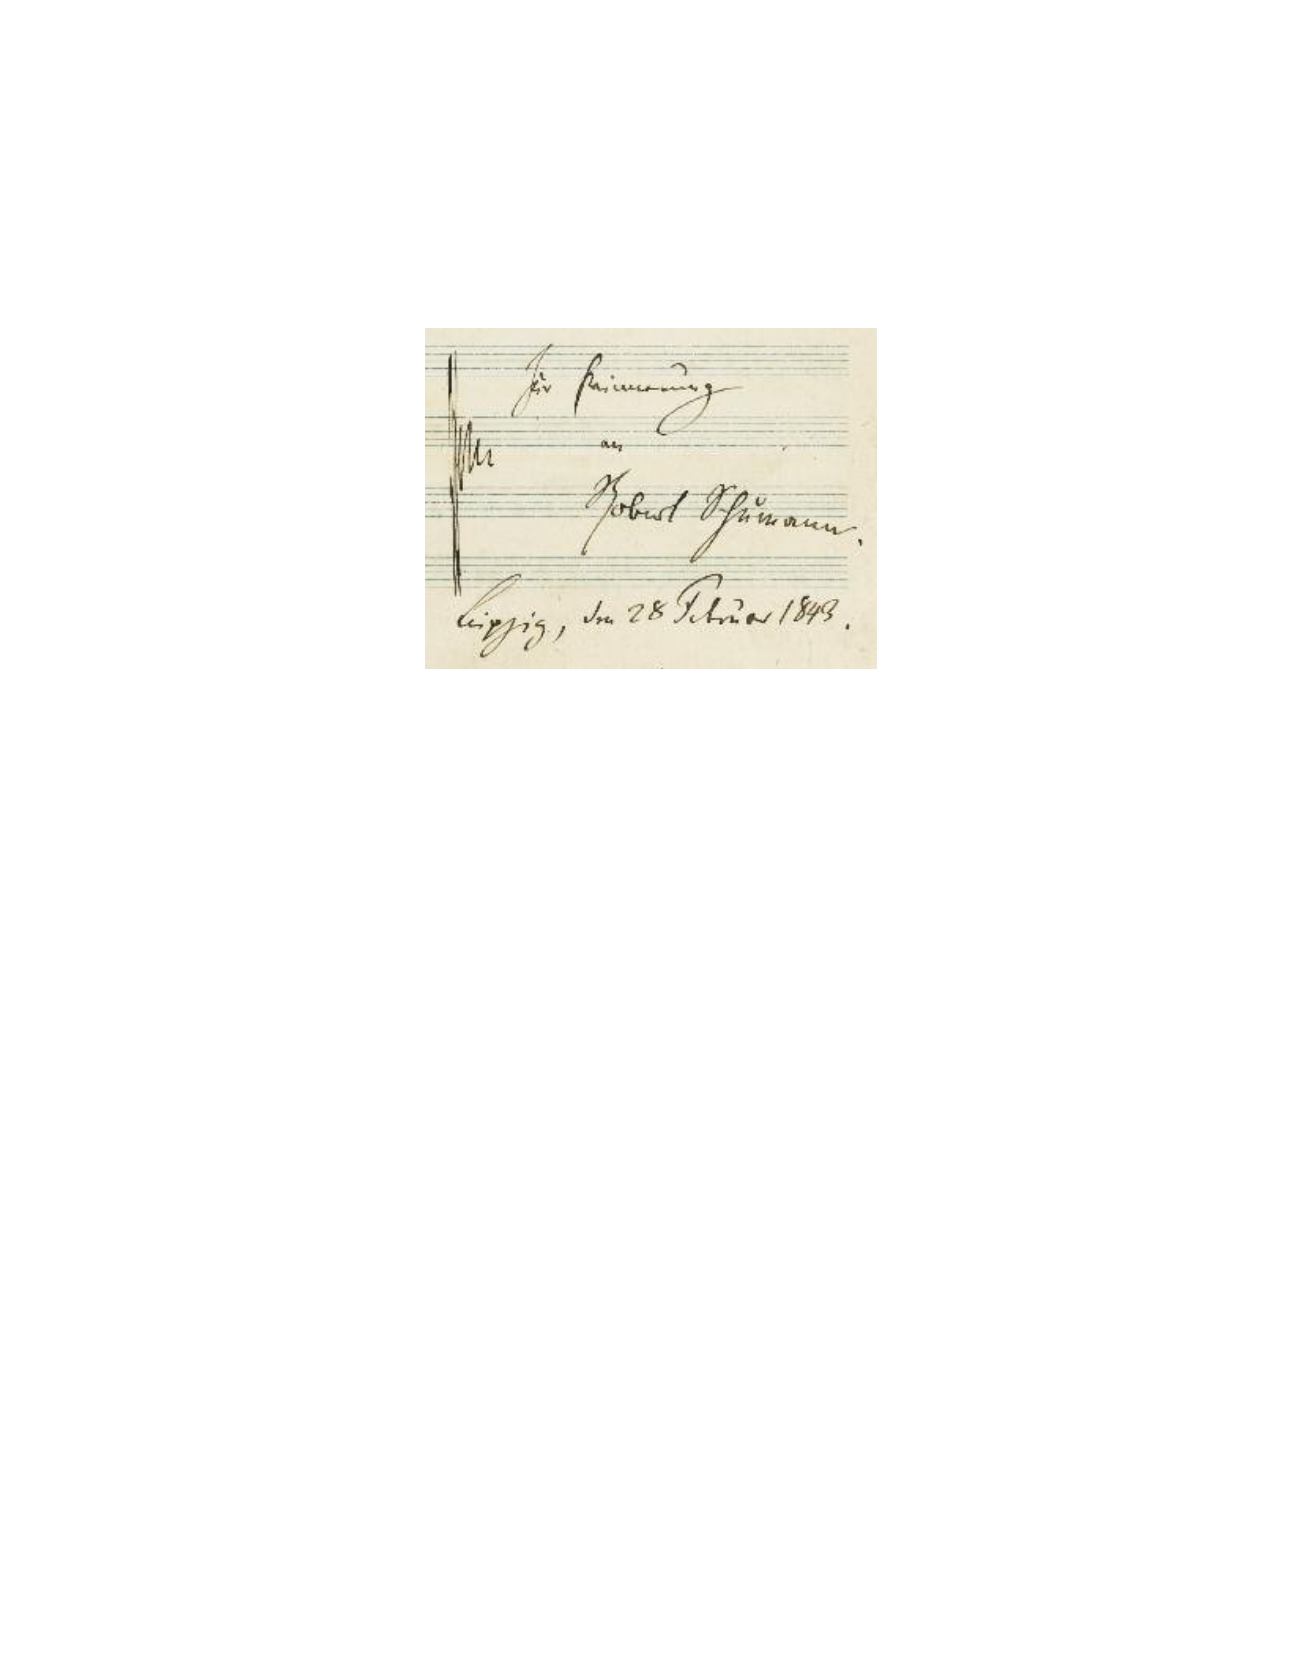 Zur Erinnerung
an
Robert Schumann.
Leipzig, den 28 Februar 1843.